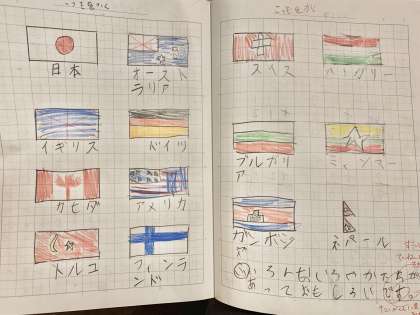 こっきをかく
日本
オースト
ラリア
イギリス
ドイツ
カナダ
アメリカ
トルコ
フィンラ
ンド
こっきをかく
スイス
ハンガリー
ブルガリ
ア
ミャンマー
カンボジ
ア
ネパール
いろんないろやかたちが
あっておもしろいです